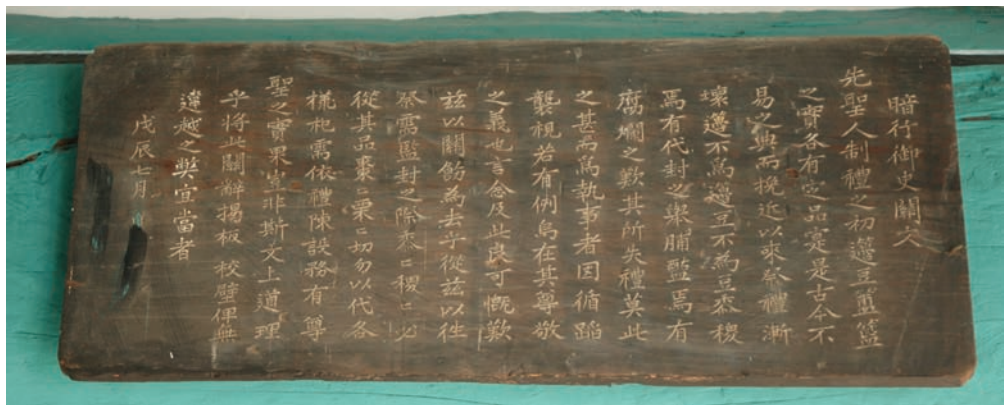 暗行御史關文
先聖人制禮之初邊豆簠簋
之實各有定品寔是古今不
易之典而挽近以來祭禮漸
壞邊不為邊豆不為豆黍稷
焉有代封之弊脯醢焉有
腐爛之歎其所失禮莫此
之甚而為執事者因循蹈
襲視若有例烏在其尊敬
之義也言念及此良可慨歎
玆以關飭為去乎從玆以往
祭需監封之際黍ニ稷ニ必
從其品棗ニ栗ニ切勿以代各
樣祀需依禮陳設務有尊
聖之實果豈非斯文上道理
乎將此關辭揭板 校壁俾無
違越之弊宜當者
戊辰七月 日